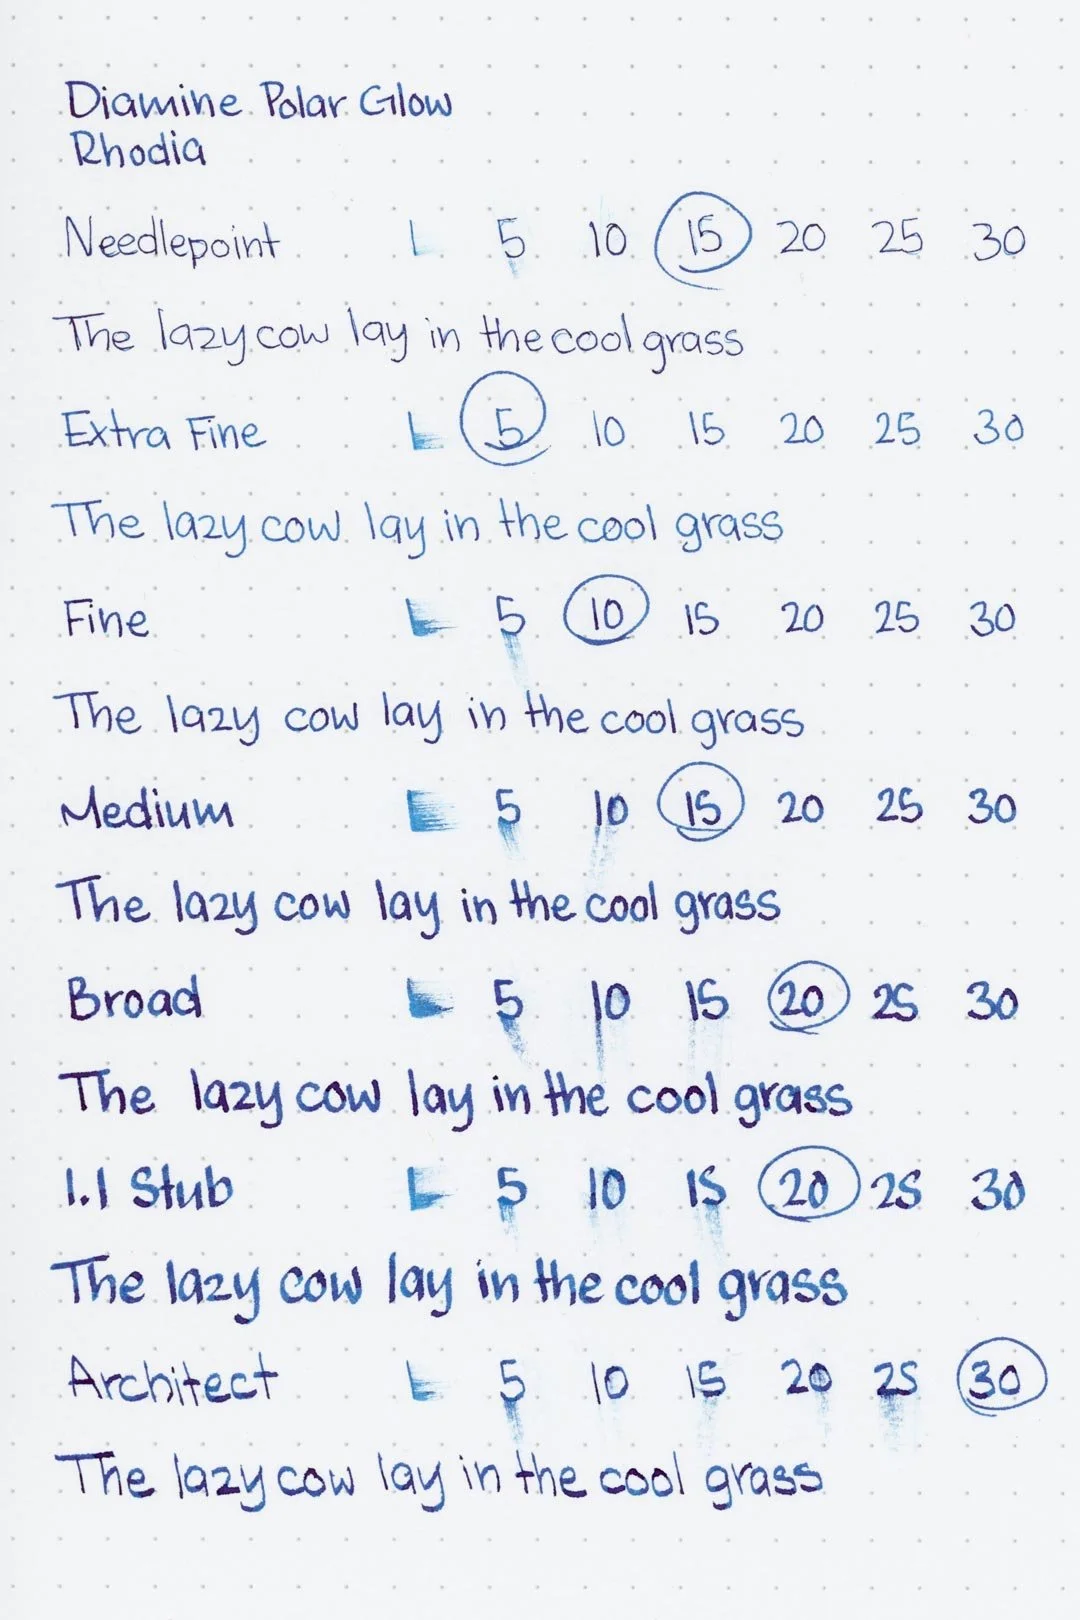 Diamine Polar Glow
Rhodia
Needlepoint L 5 10 15 20 25 30
The lazy cow lay in the cool grass
Extra Fine L 5 10 15 20 25 30
The lazy cow lay in the cool grass
Fine L 5 10 15 20 25 30
The lazy cow lay in the cool grass
Medium L 5 10 15 20 25 30
The lazy cow lay in the cool grass
Broad L 5 10 15 20 25 30
The lazy cow lay in the cool grass
1.1 Stub L 5 10 15 20 25 30
The lazy cow lay in the cool grass
Architect L 5 10 15 20 25 30
The lazy cow lay in the cool grass